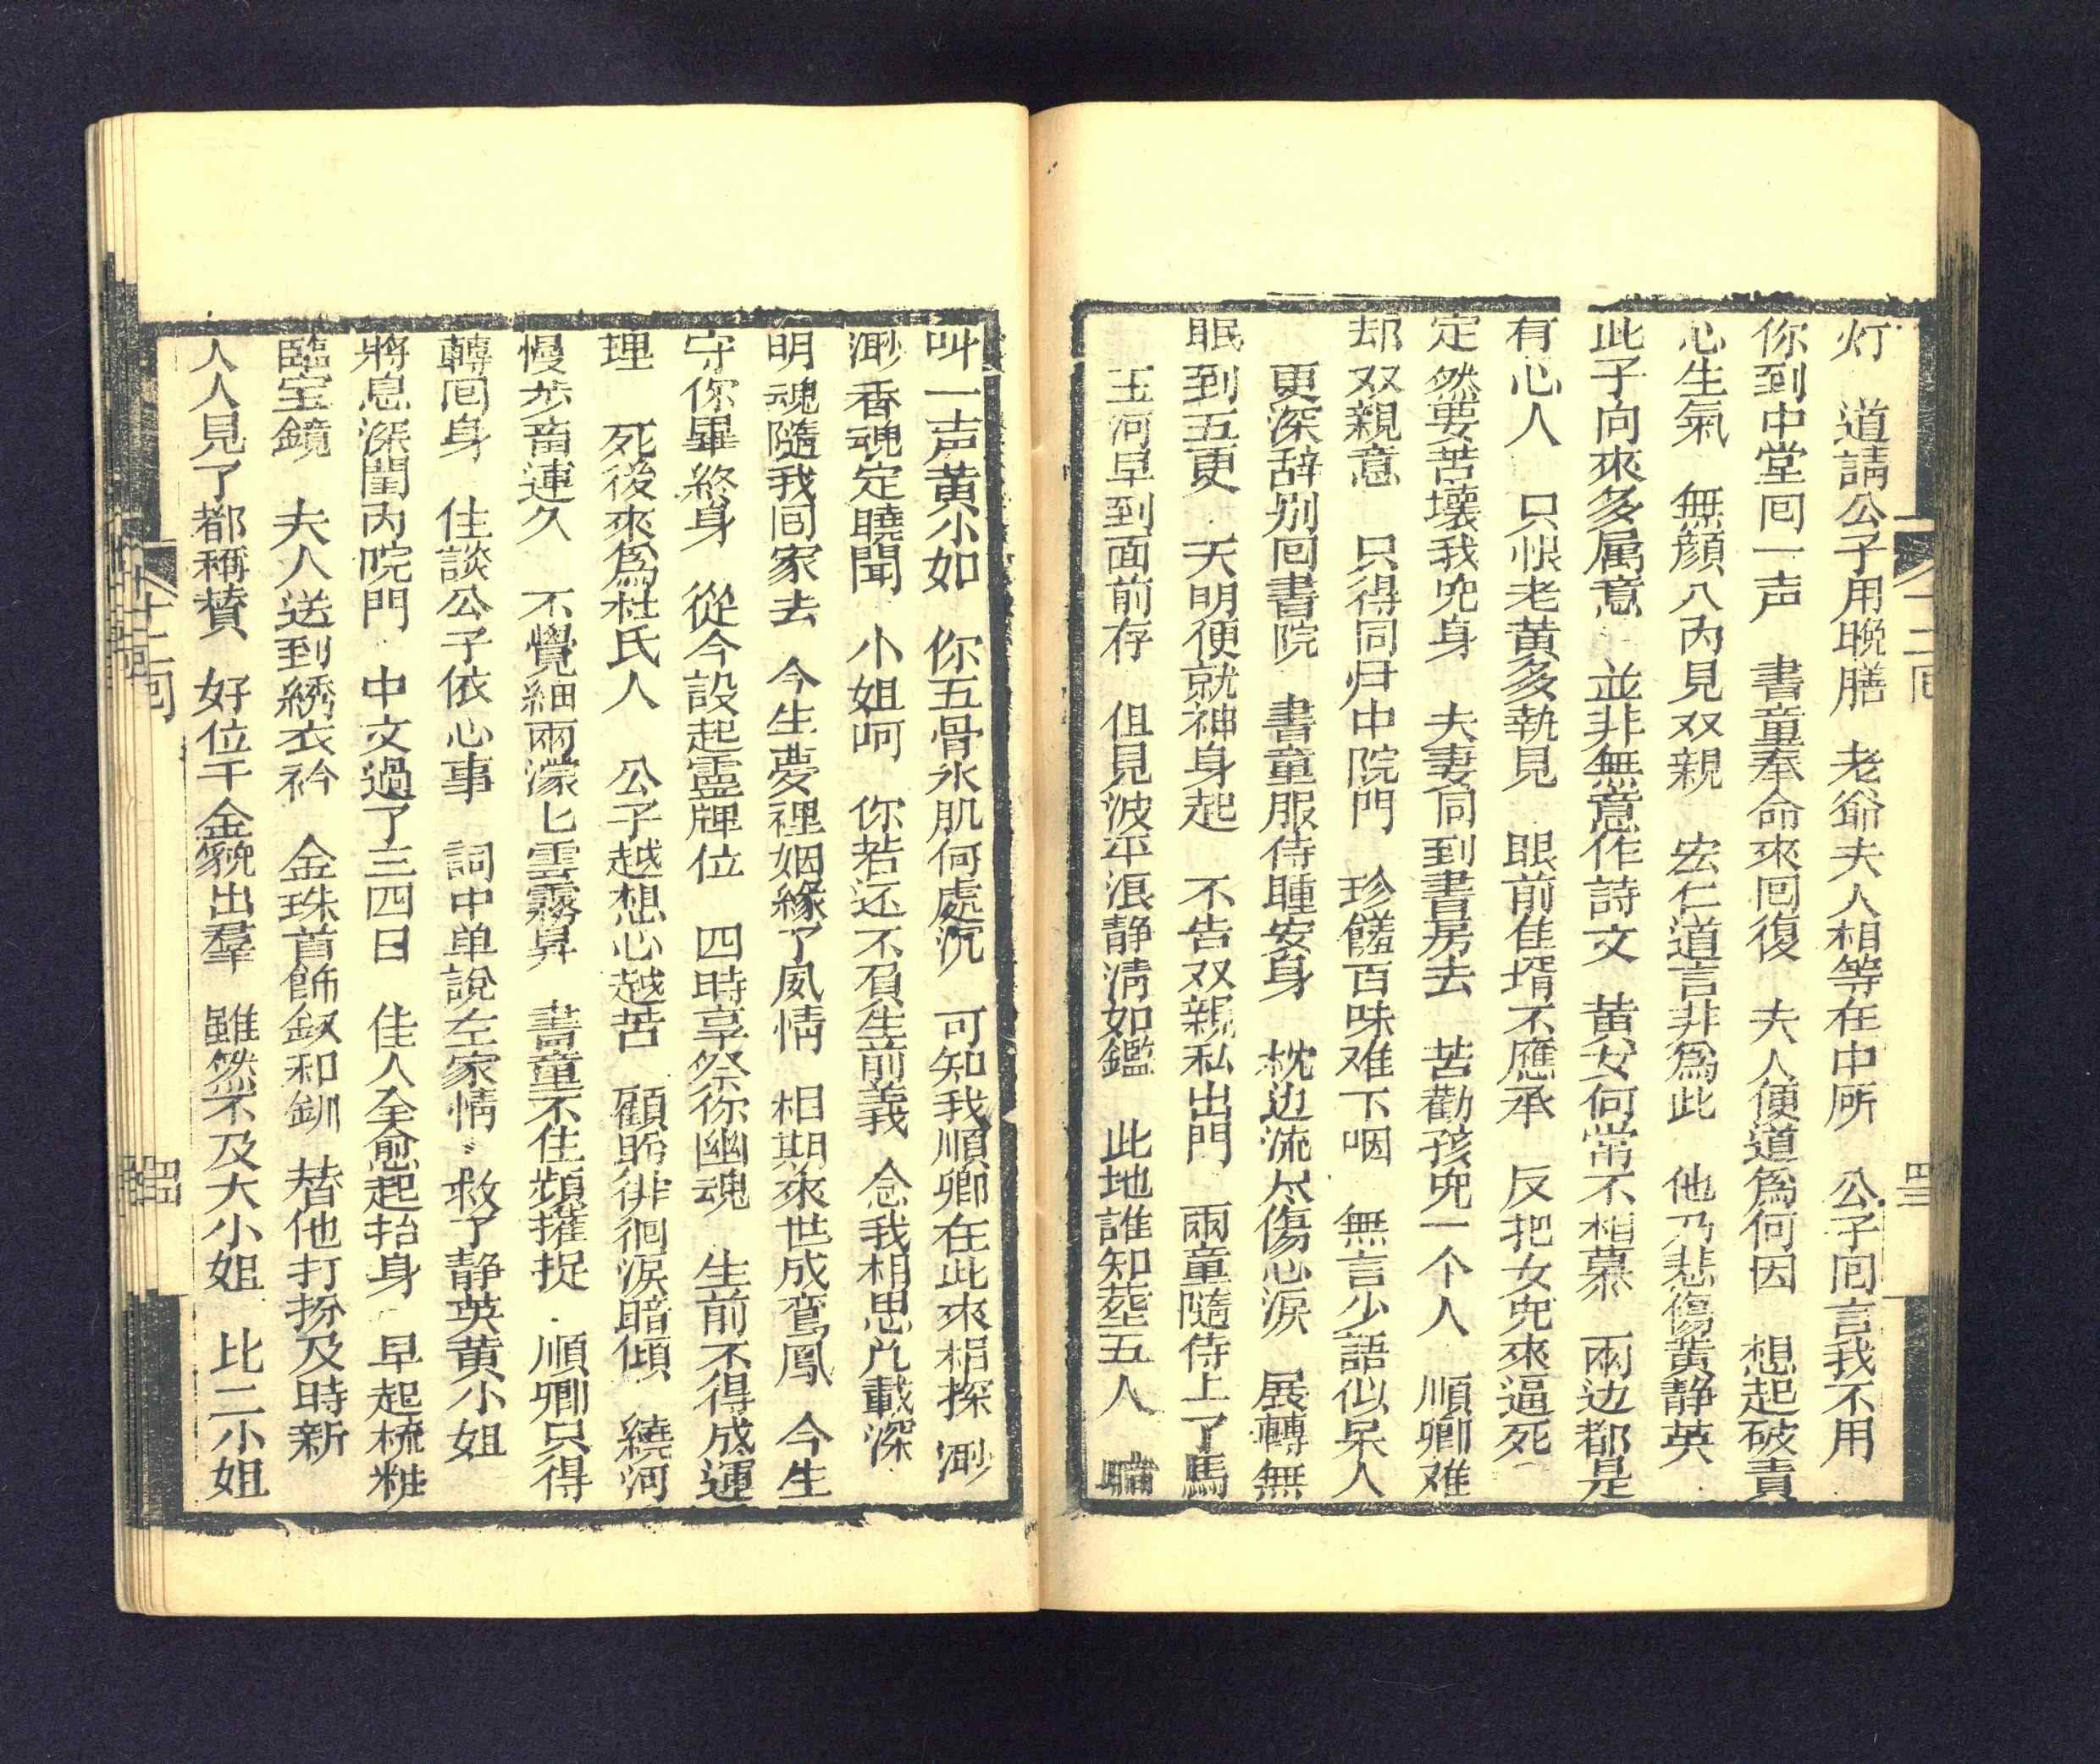 灯　道請公子用晚膳　老爺夫人相等在中所　公子囘言我不用
你到中堂囘一声　書童奉命來囘復　夫人便道爲何因　想起破責
心生氣　無顔入內見双親　宏仁道言非爲此　他乃悲傷黄静英
此子向來多属意　並非無意作詩文　黄女何常不相慕　兩边都是
有心人　只恨老黄多執見　眼前佳壻不應承　反把女兒來逼死
定然要苦壞我兒身　夫妻同到書房去　苦勸孩兒一个人　順卿难
却双親意　只得同归中院門　珍饈百味难下咽　無言少語似呆人
更深辞别囘書院　書童服侍睡安身　枕边流尽傷心淚　展轉無
眠到五更　天明便就神身起　不告双親私出門　兩童隨侍上了馬
玉河早到面前存　但見波平浪静清如鑑　此地誰知葬五人
叫一声黄小如　你玉骨氷肌何處沉　可知我順卿在此來相探　渺
渺香魂定曉聞　小姐呵　你若还不負生前義　念我相思九載深
明魂隨我囘家去　今生夢裡姻緣了夙情　相期來世成鸞鳳　今生
守你畢終身　從今設起靈牌位　四時享祭你幽魂　生前不得成運
理　死後來爲杜氏人　公子越想心越苦　顧盼徘徊淚暗傾　繞河
慢步畜連久　不覺細雨濛匕雲霧昇　書童不住頻攉捉　順卿只得
轉囘身　住談公子依心事　詞中单說左家情　救了静英黄小姐
將息深閨內院門　中文過了三四日　佳人全愈起抬身　早起梳粧
臨宝鏡　夫人送到綉衣衿　金珠首飾釵和釧　替他打扮及時新
人人見了都稱賛　好位千金貌出羣　雖然不及大小姐　比二小姐
十二囘
十二囘